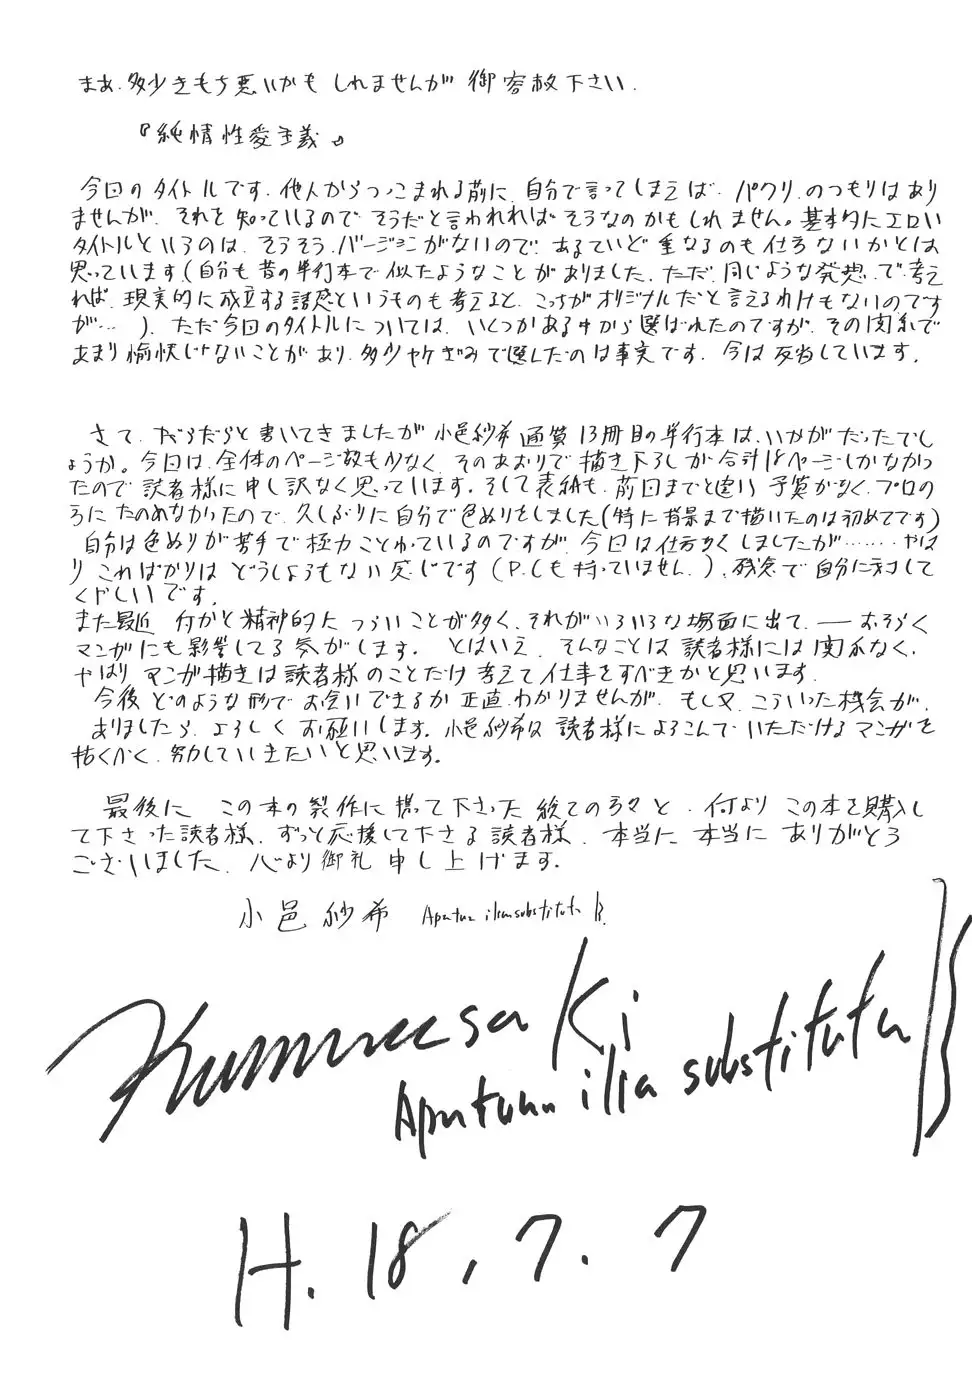 まあ、多少きもち悪いかもしれませんが御容赦下さい.
『純情性愛主義』
今回のタイトルです. 他人からつっこまれる前に、自分で言ってしまえば、パクリのつもりはあり
ませんが、それを知っているのでそうだと言われればそうなのかもしれません。基本的にエロい
タイトルというのは、そうそうバージョンがないので、あるていど重なるのも仕方ないかとは
思っています(自分も昔の単行本で似たようなことがありました、ただ、同じような発想で考え
れば、現実的に成立する語感というものも考えると、こっちがオリジナルだと言えるわけもないのです
が…). ただ今回のタイトルについては、いくつかある中から選ばれたのですが、その関係で
あまり愉快じゃないことがあり、多少ヤケぎみで選んだのは事実です. 今は反省しています.
さて、だらだらと書いてきましたが小邑紗希通算13冊目の単行本は、いかがだったでし
ょうか。今回は、全体のページ数も少なく、そのあおりで描き下ろしが合計18ページしかなかっ
たので読者様に申し訳なく思っています. そして表紙も、前回までと違い予算がなく、プロの
方にたのめなかったので、久しぶりに自分で色ぬりをしました(特に背景まで描いたのは初めてです)
自分は色ぬりが苦手で極力ことわっているのですが、今回は仕方なくしましたが……やは
りこればかりはどうしようもない感じです(P.Cも持っていません.)、残念で自分に対して
くやしいです.
また最近何かと精神的につらいことが多く、それがいろいろな場面に出て、―おそらく
マンガにも影響してる気がします. とはいえ、そんなことは読者様には関係なく、
やはりマンガ描きは読者様のことだけ考えて仕事をすべきかと思います.
今後どのような形でお会いできるか正直わかりませんが、もし又、こういった機会が、
ありましたら、よろしくお願いします. 小邑紗希は読者様によろこんでいただけるマンガを
描くべく、努力していきたいと思います.
最後にこの本の製作に携って下さった総ての方々と、何よりこの本を購入し
て下さった読者様、ずっと応援して下さる読者様、本当に本当にありがとう
ございました、心より御礼申し上げます.
小邑紗希 Apatura ilia substituta B.
Kumuesaki
Apatura ilia substituta B
H. 18, 7. 7